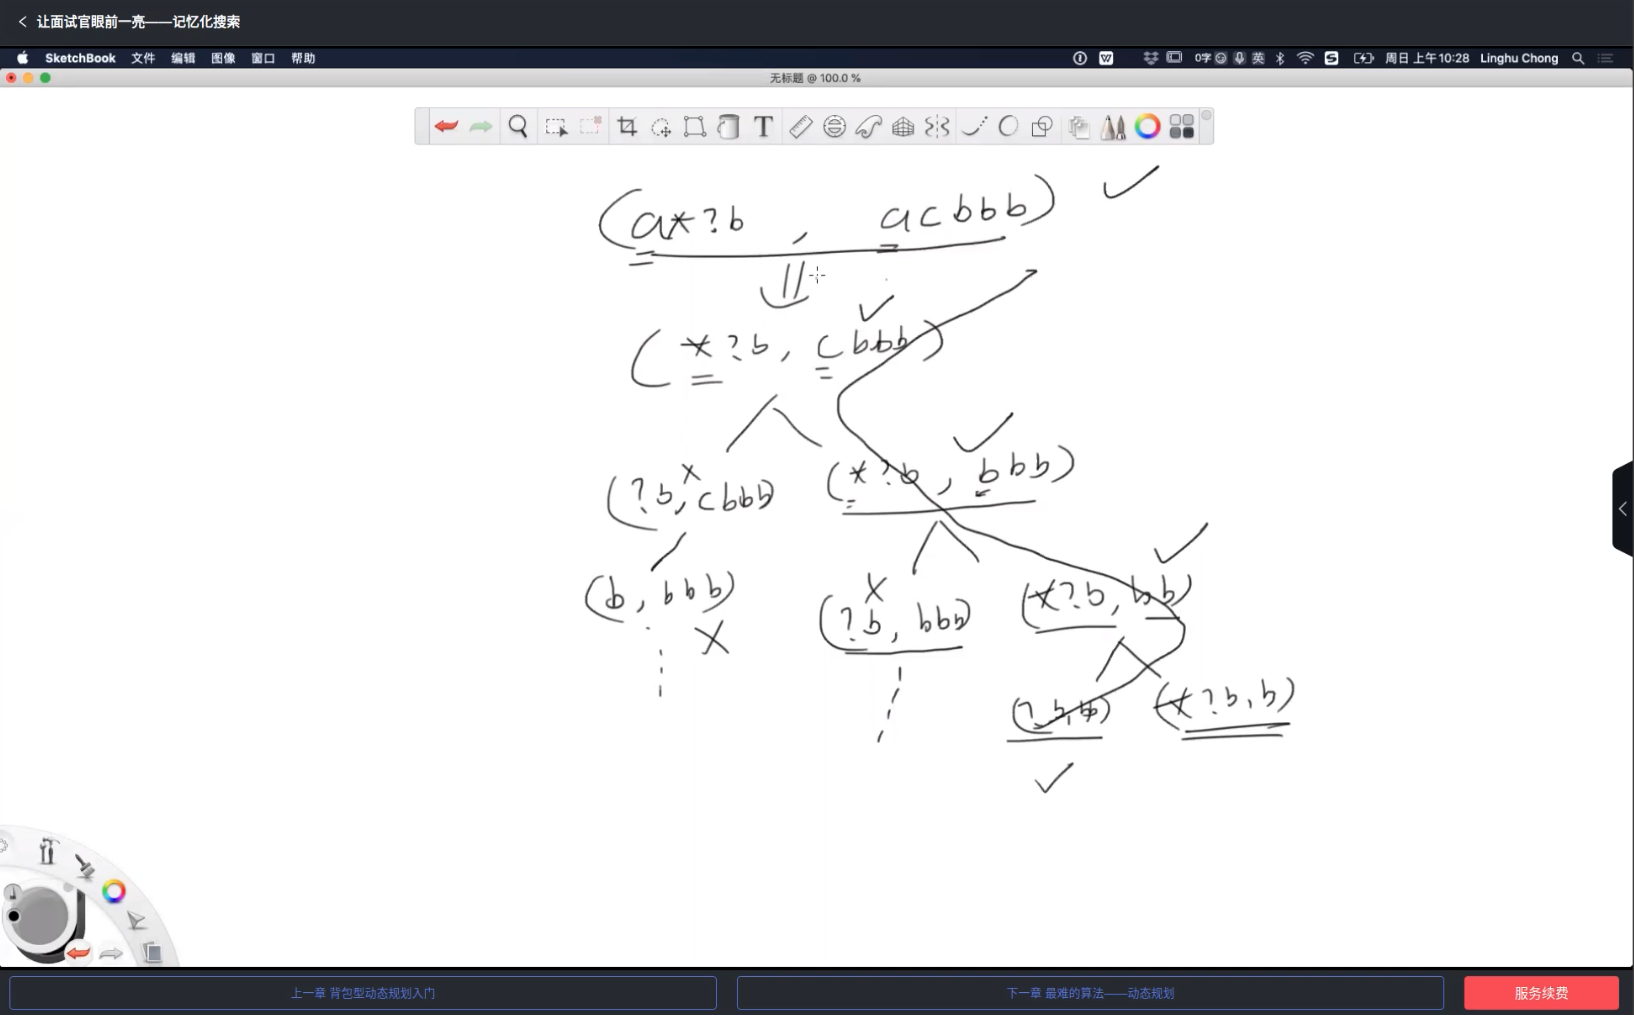 让面试官眼前一亮——记忆化搜索
SketchBook 文件 编辑 图像 窗口 帮助
0字 英 周日 上午10:28 Linghu Chong
无标题 @ 100.0 %
T
(a*?b , acbbb)
(*?b, cbbb)
(?b, cbbb) (*?b, bbb)
(b, bbb) (?b, bbb) (*?b, bb)
X
(?b, b) (*?b, b)
上一章 背包型动态规划入门
下一章 最难的算法——动态规划
服务续费